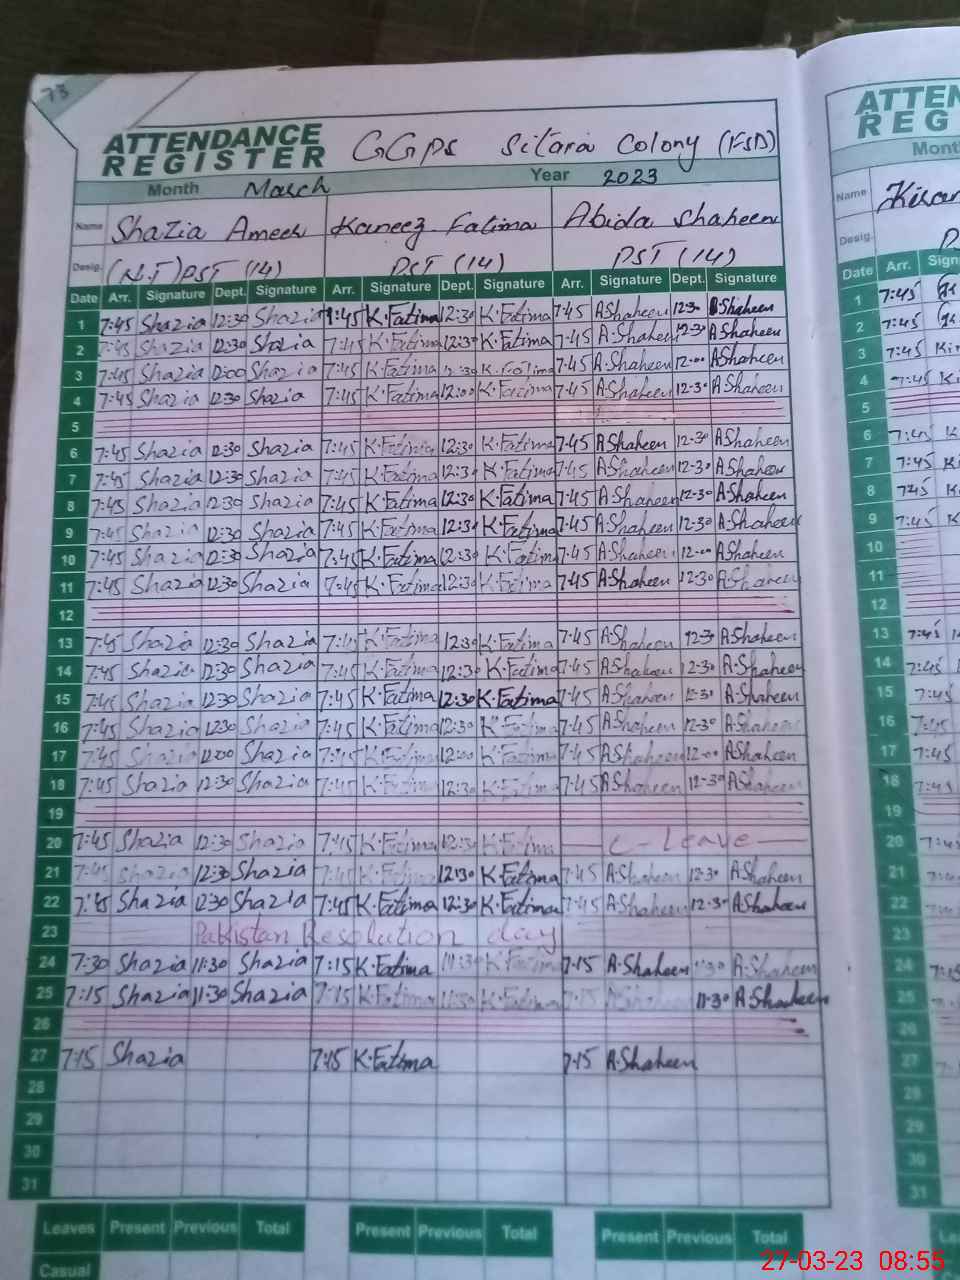 73
ATTENDANCE REGISTER GGPS Sitara Colony (FSD)
Month March Year 2023
Name Shazia Ameer Kaneez Fatima Abida Shaheen
Desig. (N.T) PST (14) PST (14) PST (14)
Date Arr. Signature Dept. Signature Arr. Signature Dept. Signature Arr. Signature Dept. Signature
1 7:45 Shazia 12:30 Shazia 7:45 K.Fatima 12:30 K.Fatima 7:45 AShaheen 12:30 AShaheen
2 7:45 Shazia 12:30 Shazia 7:45 K.Fatima 12:30 K.Fatima 7:45 A.Shaheen 12-30 AShaheen
3 7:45 Shazia 12:00 Shazia 7:45 K.Fatima 12:30 K.Fatima 7.45 A.Shaheen 12-00 AShaheen
4 7:45 Shazia 12:30 Shazia 7:45 K.Fatima 12:00 K.Fatima 7-45 A.Shaheen 12-30 A Shaheen
5
6 7:45 Shazia 12:30 Shazia 7:45 K.Fatima 12:30 K.Fatima 7.45 AShaheen 12-30 AShaheen
7 7:45 Shazia 12:30 Shazia 7:45 K.Fatima 12:30 K.Fatima 7.45 AShaheen 12-30 AShaheen
8 7:45 Shazia 12:30 Shazia 7:45 K.Fatima 12:30 K.Fatima 7-45 A.Shaheen 12-30 A.Shaheen
9 7:45 Shazia 12:30 Shazia 7:45 K.Fatima 12:30 K.Fatima 7-45 A.Shaheen 12-30 A.Shaheen
10 7:45 Shazia 12:30 Shazia 7:45 K.Fatima 12:30 K.Fatima 7-45 AShaheen 12-00 AShaheen
11 7:45 Shazia 12:30 Shazia 7:45 K.Fatima 12:30 K.Fatima 7.45 AShaheen 12-30 A.Shaheen
12
13 7:45 Shazia 12:30 Shazia 7:45 K.Fatima 12:30 K.Fatima 7.45 A.Shaheen 12-30 AShaheen
14 7:45 Shazia 12:30 Shazia 7:45 K.Fatima 12:30 K.Fatima 7.45 AShaheen 12-30 A.Shaheen
15 7:45 Shazia 12:30 Shazia 7:45 K.Fatima 12:30 K.Fatima 7-45 AShaheen 12-30 A.Shaheen
16 7:45 Shazia 12:30 Shazia 7:45 K.Fatima 12:30 K.Fatima 7-45 AShaheen 12-30 A.Shaheen
17 7:45 Shazia 12:00 Shazia 7:45 K.Fatima 12:00 K.Fatima 7-45 AShaheen 12-00 AShaheen
18 7:45 Shazia 12:30 Shazia 7:45 K.Fatima 12:30 K.Fatima 7:45 AShaheen 12-30 AShaheen
19
20 7:45 Shazia 12:30 Shazia 7:45 K.Fatima 12:30 K.Fatima C-Leave
21 7:45 Shazia 12:30 Shazia 7:45 K.Fatima 12:30 K.Fatima 7.45 A.Shaheen 12.30 A.Shaheen
22 7:45 Shazia 12:30 Shazia 7:45 K.Fatima 12:30 K.Fatima 7.45 A.Shaheen 12-30 AShaheen
23 Pakistan Resolution day
24 7:30 Shazia 11:30 Shazia 7:15 K.Fatima 11:30 K.Fatima 7.15 A.Shaheen 11:30 A.Shaheen
25 7:15 Shazia 11:30 Shazia 7:15 K.Fatima 11:30 K.Fatima 7.15 A.Shaheen 11-30 A Shaheen
26
27 7:15 Shazia 7:15 K.Fatima 7.15 A.Shaheen
28
29
30
31
Leaves Present Previous Total Present Previous Total Present Previous Total
Casual
ATTEN
REG
Month
Name Kiran
Desig.
Date Arr. Sign
1 7:45
2 7:45
3 7:45
4 7:45
5
6 7:45
7 7:45
8 7:45
9 7:45
10
11
12
13 7:45
14 7:45
15 7:45
16 7:45
17 7:45
18 7:45
19
20
21
22
23
24
25
26
27
28
29
30
31
27-03-23 08:55